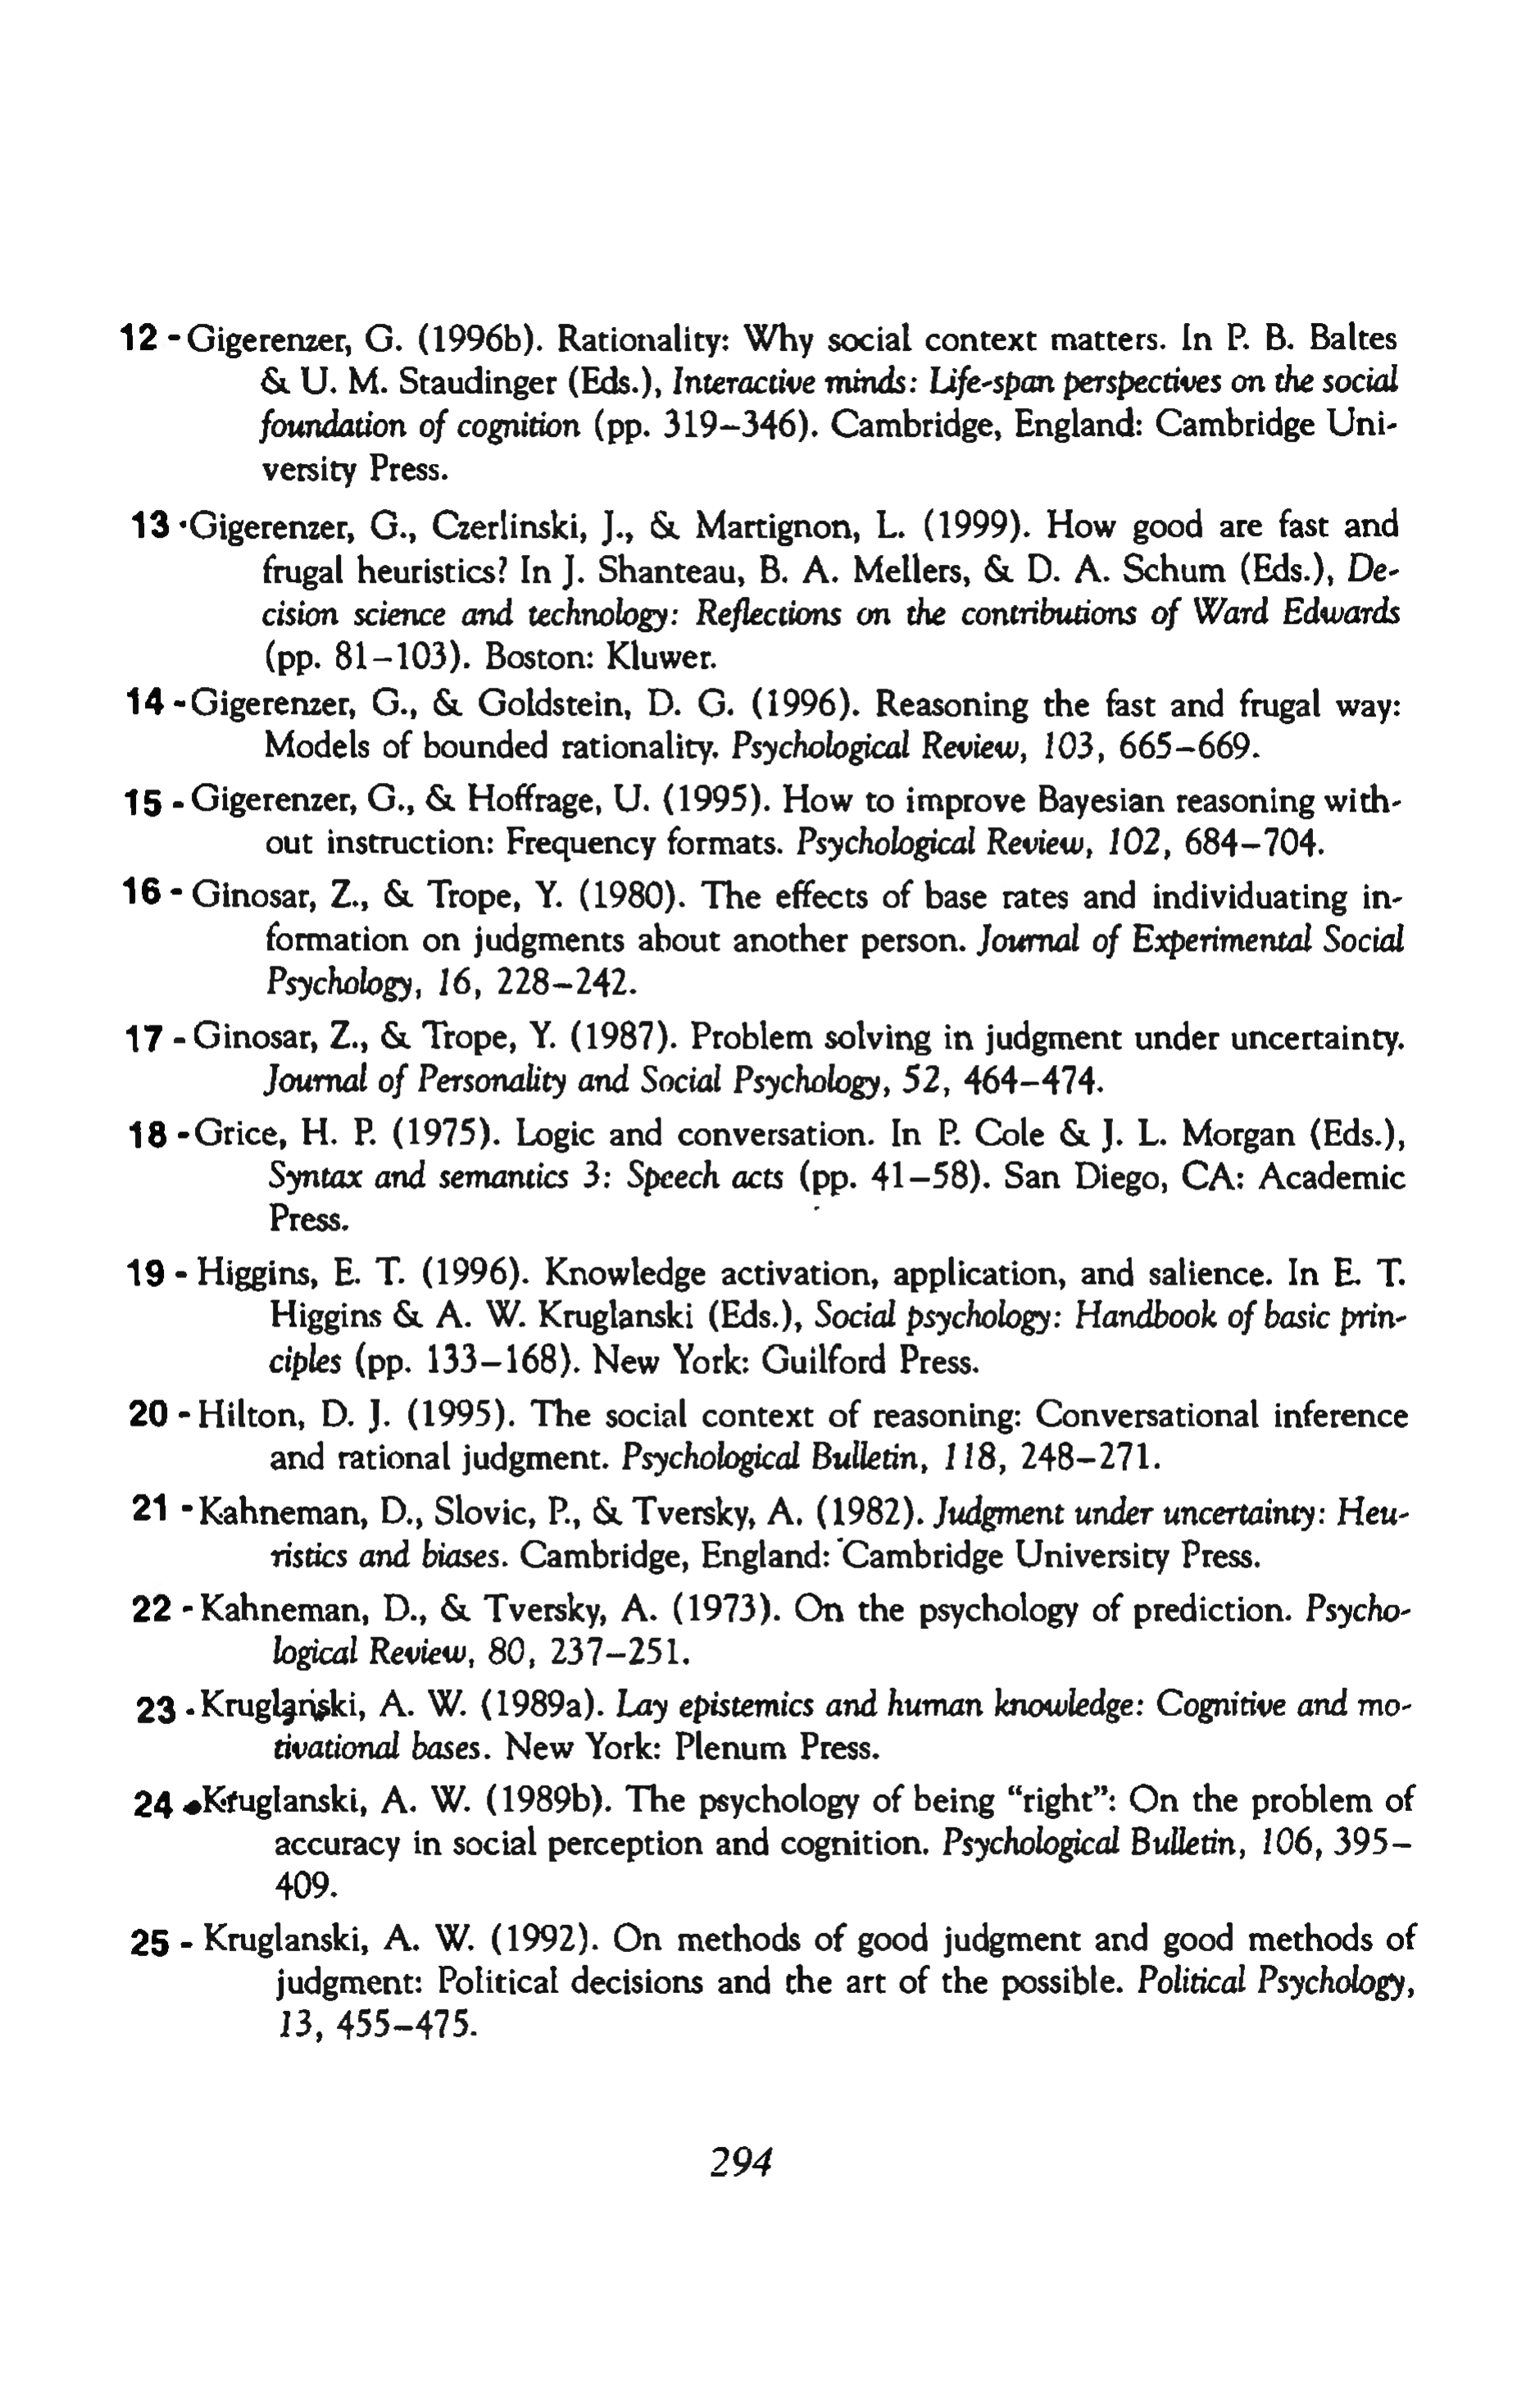 12 - Gigerenzer, G. (1996b). Rationality: Why social context matters. In P. B. Baltes
& U. M. Staudinger (Eds.), Interactive minds: Life-span perspectives on the social
foundation of cognition (pp. 319–346). Cambridge, England: Cambridge Uni-
versity Press.
13 ·Gigerenzer, G., Czerlinski, J., & Martignon, L. (1999). How good are fast and
frugal heuristics? In J. Shanteau, B. A. Mellers, & D. A. Schum (Eds.), De-
cision science and technology: Reflections on the contributions of Ward Edwards
(pp. 81–103). Boston: Kluwer.
14 - Gigerenzer, G., & Goldstein, D. G. (1996). Reasoning the fast and frugal way:
Models of bounded rationality. Psychological Review, 103, 665–669.
15 - Gigerenzer, G., & Hoffrage, U. (1995). How to improve Bayesian reasoning with-
out instruction: Frequency formats. Psychological Review, 102, 684–704.
16 - Ginosar, Z., & Trope, Y. (1980). The effects of base rates and individuating in-
formation on judgments about another person. Journal of Experimental Social
Psychology, 16, 228–242.
17 - Ginosar, Z., & Trope, Y. (1987). Problem solving in judgment under uncertainty.
Journal of Personality and Social Psychology, 52, 464–474.
18 - Grice, H. P. (1975). Logic and conversation. In P. Cole & J. L. Morgan (Eds.),
Syntax and semantics 3: Speech acts (pp. 41–58). San Diego, CA: Academic
Press.
19 - Higgins, E. T. (1996). Knowledge activation, application, and salience. In E. T.
Higgins & A. W. Kruglanski (Eds.), Social psychology: Handbook of basic prin-
ciples (pp. 133–168). New York: Guilford Press.
20 - Hilton, D. J. (1995). The social context of reasoning: Conversational inference
and rational judgment. Psychological Bulletin, 118, 248–271.
21 - Kahneman, D., Slovic, P., & Tversky, A. (1982). Judgment under uncertainty: Heu-
ristics and biases. Cambridge, England: Cambridge University Press.
22 - Kahneman, D., & Tversky, A. (1973). On the psychology of prediction. Psycho-
logical Review, 80, 237–251.
23 - Kruglanski, A. W. (1989a). Lay epistemics and human knowledge: Cognitive and mo-
tivational bases. New York: Plenum Press.
24 - Kruglanski, A. W. (1989b). The psychology of being “right”: On the problem of
accuracy in social perception and cognition. Psychological Bulletin, 106, 395–
409.
25 - Kruglanski, A. W. (1992). On methods of good judgment and good methods of
judgment: Political decisions and the art of the possible. Political Psychology,
13, 455–475.
294